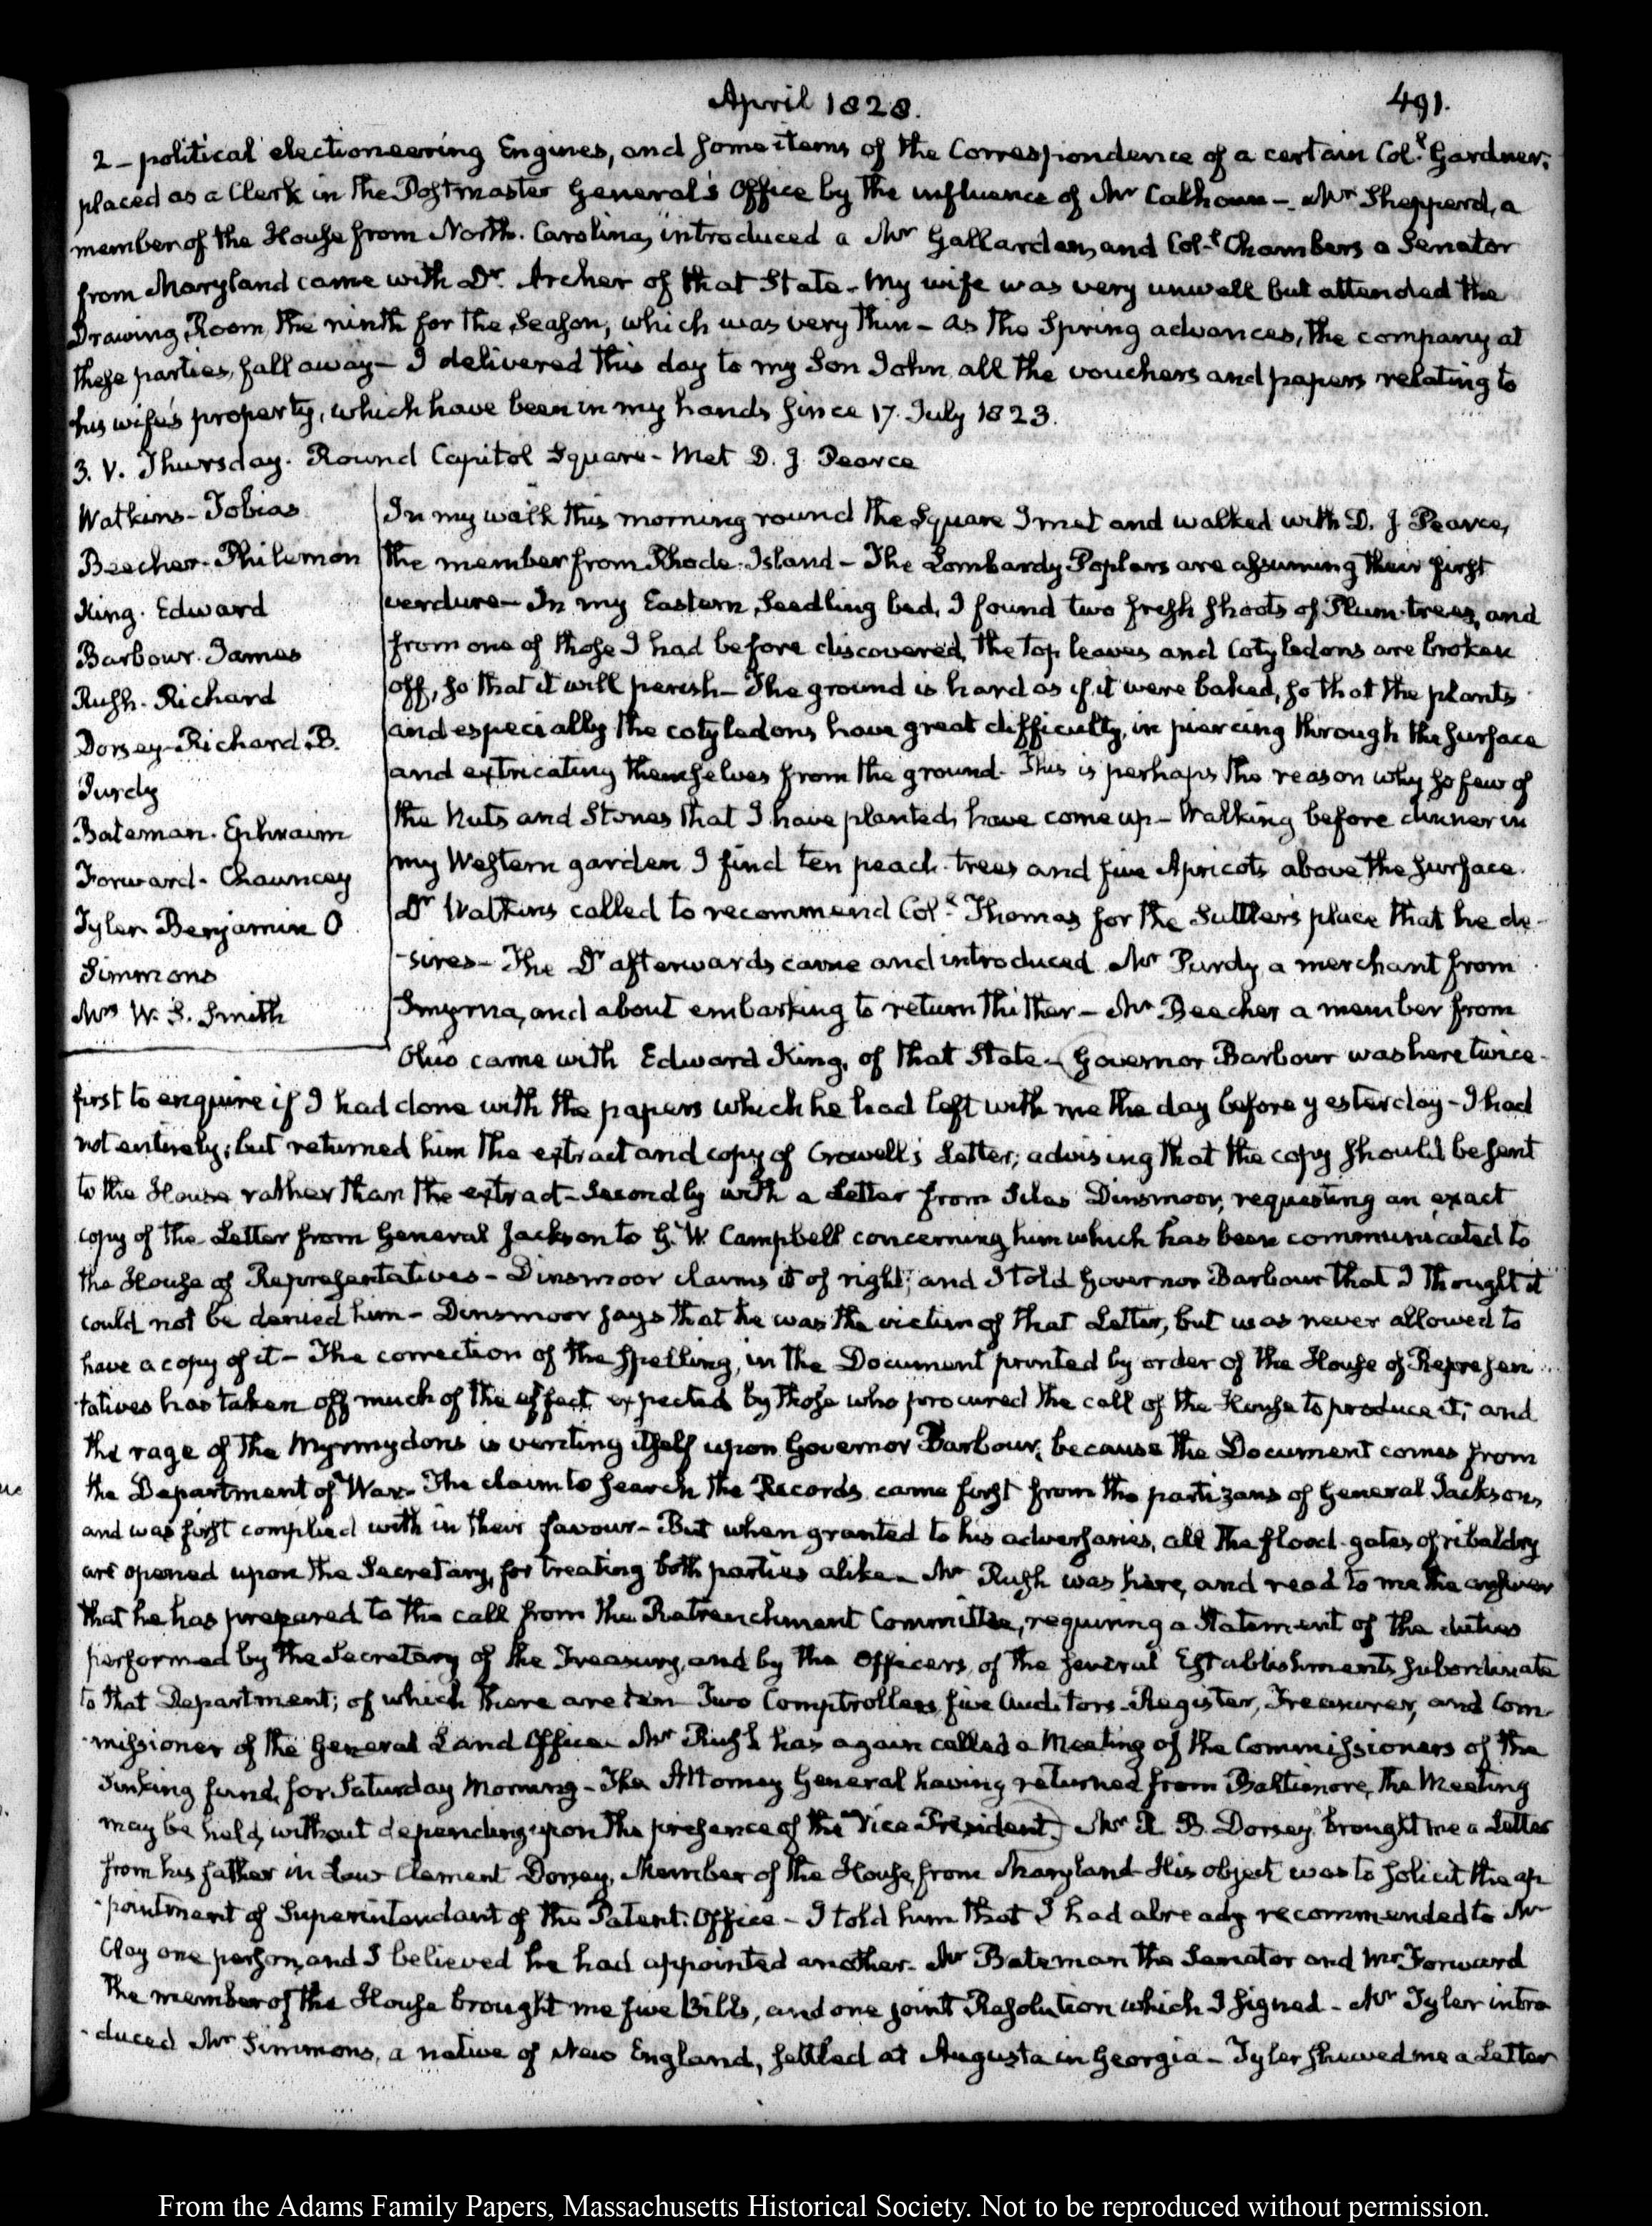 April 1828.
491.
2 - political electioneering Engines, and some items of the Correspondence of a certain Coll. Gardner,
placed as a Clerk in the Postmaster General's Office by the influence of Mr Calhoun - Mr Shepperd, a
member of the House from North-Carolina, introduced a Mr Gallardon, and Coll. Chambers a Senator
from Maryland came with Dr. Archer of that State - My wife was very unwell but attended the
Drawing Room, the ninth for the Season, which was very thin - As the Spring advances, the company at
these parties, fall away - I delivered this day to my Son John all the vouchers and papers relating to
his wife's property, which have been in my hands since 17. July 1823.
3. V. Thursday. Round Capitol Square - Met D. J. Pearce
Watkins - Tobias
Beecher. Philemon
King. Edward
Barbour. James
Rush. Richard
Dorsey - Richard. B.
Purdy
Bateman. Ephraim
Forward. Chauncey
Tyler Benjamin O
Simmons
Mrs W. S. Smith
In my walk this morning round the Square I met and walked with D. J. Pearce,
the member from Rhode-Island - The Lombardy Poplars are assuming their first
verdure - In my Eastern Seedling bed, I found two fresh shoots of Plum-trees, and
from one of those I had before discovered, the top leaves and Cotyledons are broken
off, so that it will perish - The ground is hard as if it were baked, so that the plants
and especially the cotyledons have great difficulty, in piercing through the surface
and extricating themselves from the ground. This is perhaps the reason why so few of
the Nuts and Stones that I have planted, have come up - Walking before dinner in
my Western garden I find ten peach-trees and five Apricots above the surface.
Dr Watkins called to recommend Coll. Thomas for the Suttler's place that he de-
-sires - The Dr afterwards came and introduced Mr Purdy, a merchant from
Smyrna, and about embarking to return thither - Mr Beecher a member from
Ohio came with Edward King, of that State - Governor Barbour was here twice -
first to enquire if I had done with the papers which he had left with me the day before yesterday - I had
not entirely; but returned him the extract and copy of Crowell's Letter; advising that the copy should be sent
to the House rather than the extract - Secondly with a Letter from Silas Dinsmoor, requesting an exact
copy of the Letter from General Jackson to G. W. Campbell concerning him which has been communicated to
the House of Representatives - Dinsmoor claims it of right; and I told Governor Barbour that I thought it
could not be denied him - Dinsmoor says that he was the victim of that Letter, but was never allowed to
have a copy of it - The correction of the spelling, in the Document printed by order of the House of Represen-
-tatives has taken off much of the effect expected by those who procured the call of the House to produce it; and
the rage of the Myrmydons is venting itself upon Governor Barbour, because the Document comes from
the Department of War. The claim to search the Records came first from the partizans of General Jackson,
and was first complied with in their favour - But when granted to his adversaries, all the flood-gates of ribaldry
are opened upon the Secretary, for treating both parties alike - Mr Rush was here, and read to me the answer
that he has prepared to the call from the Retrenchment Committee, requiring a Statement of the duties
performed by the Secretary of the Treasury, and by the Officers, of the several Establishments subordinate
to that Department; of which there are ten - Two Comptrollers, five Auditors - Register, Treasurer, and Com-
-missioner of the General Land Office - Mr Rush has again called a Meeting of the Commissioners of the
Sinking fund, for Saturday Morning - The Attorney General having returned from Baltimore, the Meeting
may be held, without depending upon the presence of the Vice President. Mr R. B. Dorsey brought me a Letter
from his father in Law Clement Dorsey, Member of the House, from Maryland - His object was to solicit the ap
-pointment of Superintendant of the Patent-Office - I told him that I had already recommended to Mr
Clay one person, and I believed he had appointed another - Mr Bateman the Senator and Mr Forward
the member of the House brought me five Bills, and one joint Resolution which I signed - Mr Tyler intro
-duced Mr Simmons, a native of New England, settled at Augusta in Georgia - Tyler shewed me a Letter
From the Adams Family Papers, Massachusetts Historical Society. Not to be reproduced without permission.